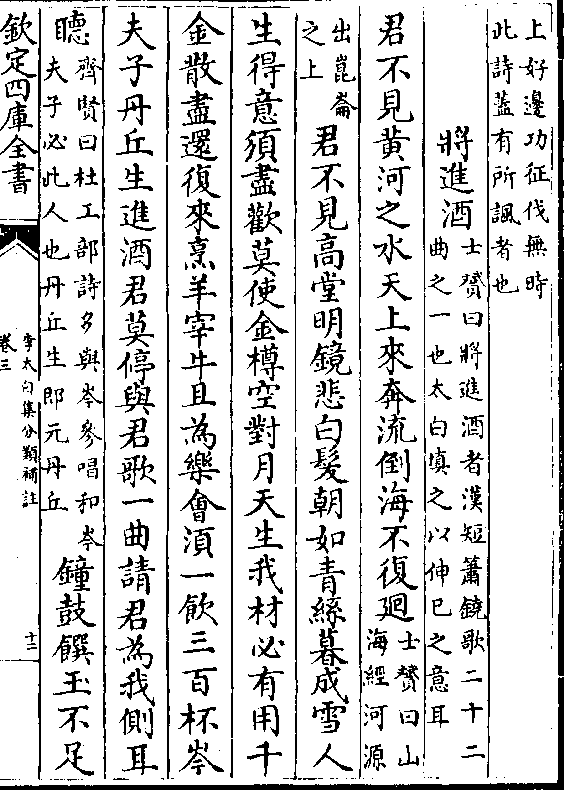 上好邊功征伐無時
此詩葢有所諷者也
將進酒
士贇曰將進酒者漢短簫鐃歌二十二
曲之一也太白塡之以伸已之意耳
君不見黃河之水天上來奔流倒海不復廻
士贇曰山
海經河源
出崑崙
之上
君不見高堂明鏡悲白髮朝如青絲暮成雪人
生得意須盡歡莫使金樽空對月天生我材必有用千
金散盡還復來烹羊宰牛且為樂會湏一飲三百杯岑
夫子丹丘生進酒君莫停與君歌一曲請君為我側耳
聽
齊賢曰杜工部詩多與岑參唱和岑
夫子必此人也丹丘生即元丹丘
鐘鼓饌玉不足
欽定四庫全書
李太白集分類補註
卷三
十二